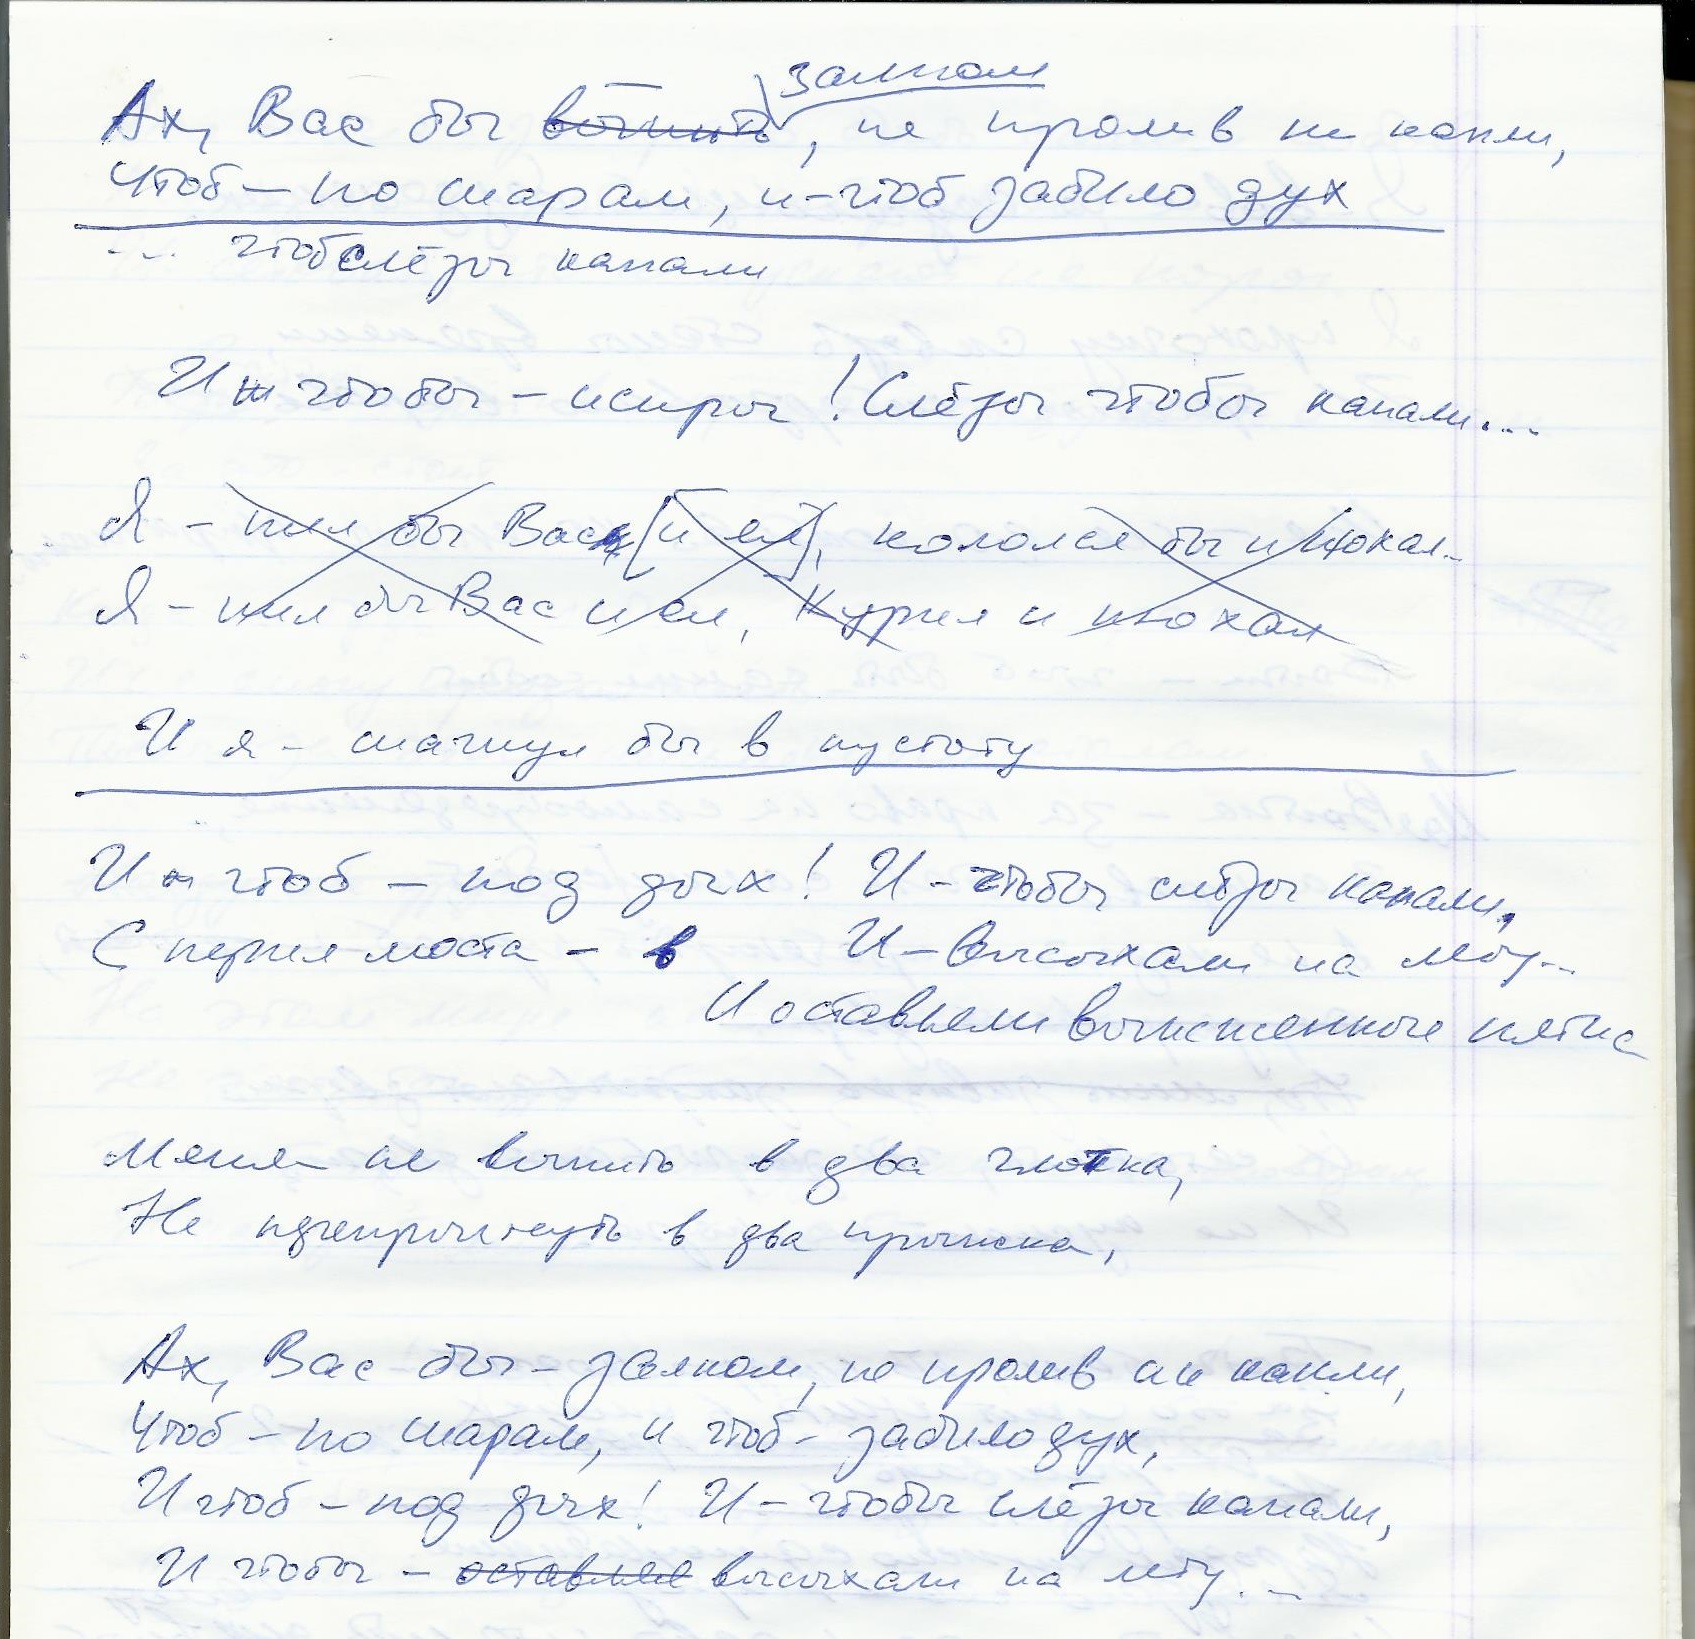 залпом
Ах, Вас бы выпить, не пролив ни капли,
Чтоб – по шарам, и – чтоб забило дух
... чтоб слёзы капали
И чтобы – искры! Слёзы чтобы капали...
Я – пил бы Вас [и ел], кололся бы и нюхал..
Я – пил бы Вас и ел, курил и нюхал
И я – шагнул бы в пустоту
И чтоб – под дых! И – чтобы слёзы капали,
С перил моста – в И – высыхали на лету...
И оставляли выжженные пятна
Меня не выпить в два глотка,
Не перепрыгнуть в два прыжка,
Ах, Вас бы – залпом, не пролив ни капли,
Чтоб – по шарам, и чтоб – забило дух,
И чтоб – под дых! И – чтобы слёзы капали,
И чтобы – оставляя высыхали на лету...